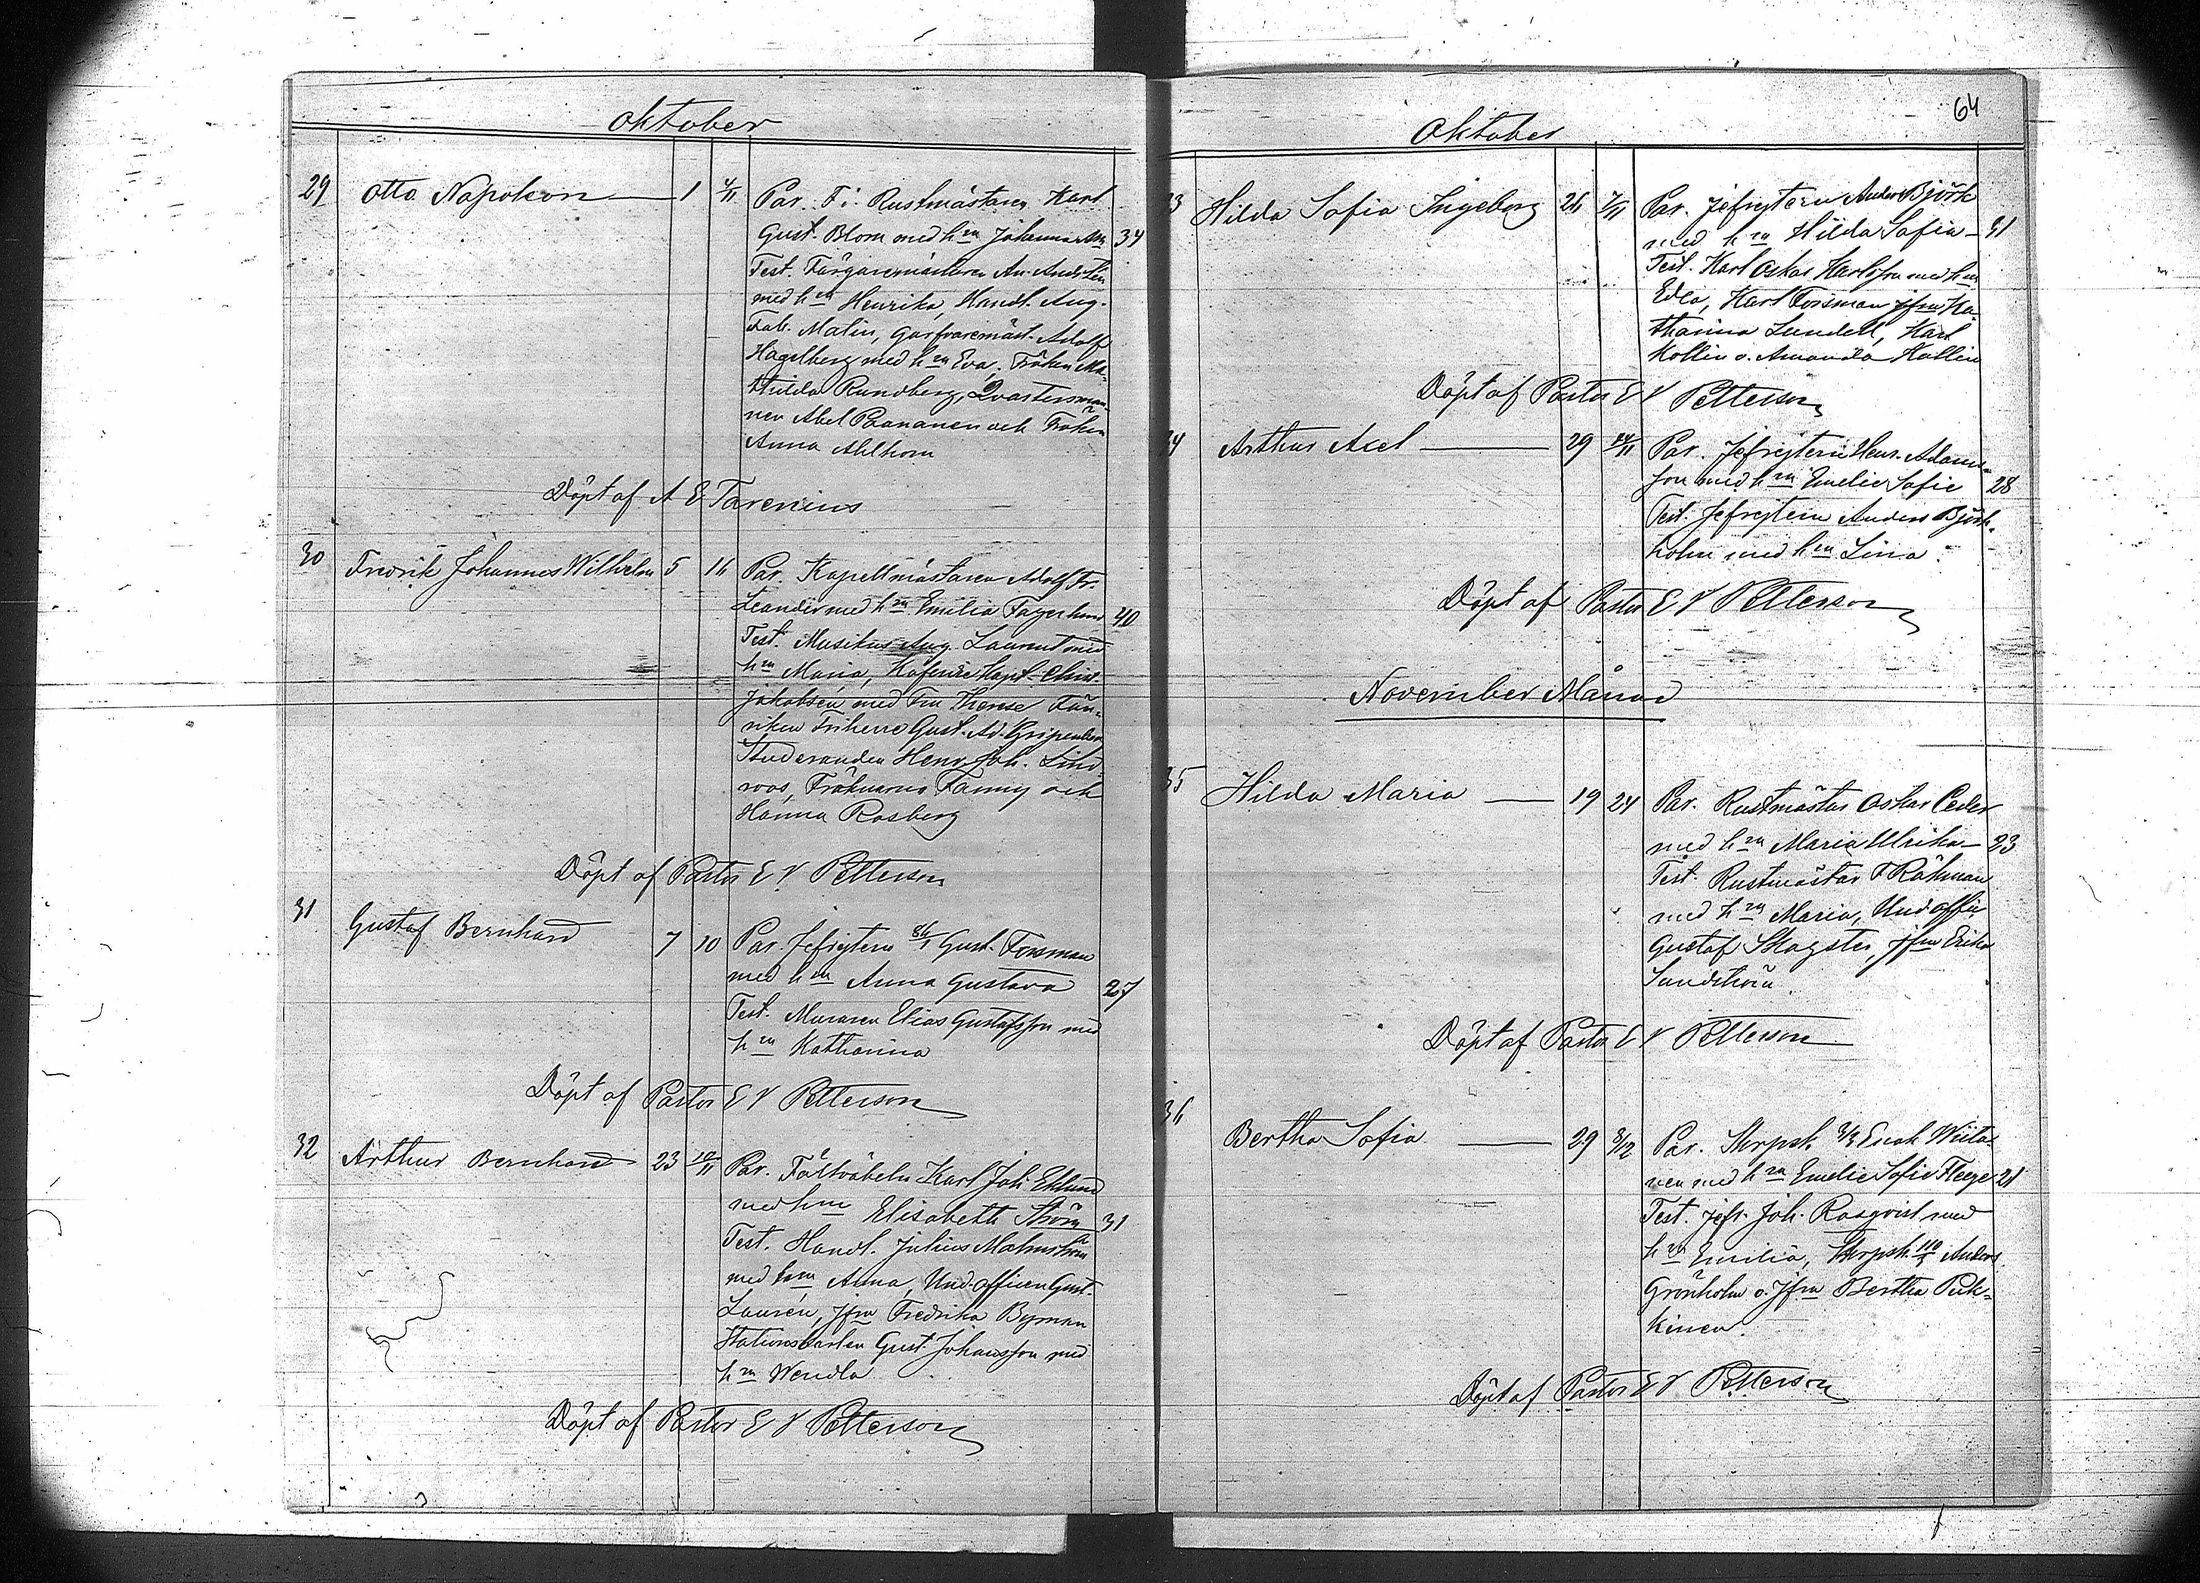 Oktober
29 Otto Napoleon 1 4/11 Par. F: Rustmästaren Karl
Gust. Blom med h:n Johanna 34
Test. Färgaremästaren
med h:n Henrika, Handl. Aug.
Fab. Malin, Garfvaremäst. Adolf
Hagelberg med h:n Eva, Fröken Ma-
thilda Rundberg, Qvartersman-
nen Abel Paananen och Fröken
Anna Ahlhorn
Döpt af A E Tarenius
30 Fredrik Johannes Wilhelm 5 16 Par. Kapellmästaren Adolf Fr.
Leander med h:n Emilia Fagerlund 40
Test. Musikus Aug. Laurent med
h:n Maria, Kapt. Chri.
Jakobsen med Fru Therese Fän-
riken Friherre Gust. Ad. Gripenberg
Studeranden Henr. Joh. Lind-
roos, Fröknarne Fanny och
Hanna Rosberg
Döpt af Pastor E V Petterson
31 Gustaf Bernhard 7 10 Par. Jefrejtern Gust. Forsman
med h:n Anna Gustava 27
Test. Muraren Elias Gustafsson med
h:n Katharina
Döpt af Pastor E V Petterson
32 Arthur Bernhard 23 Par. Fältväbeln Karl Joh. Eklund
med h:n Elisabeth Ström 31
Test. Handl. Julius Malmström
med h:n Anna, Und.officern Gust.
Laurén, Jfru Fredrika Byman
Stationskarlen Gust. Johansson med
h:n Wendla
Döpt af Pastor E V Petterson
64
Oktober
33 Hilda Sofia Ingeborg 26 7/11 Par. Jefrejtern Anders Björk
med h:n Hilda Sofia 31
Test. Karl Oskar Karlsson med h:n
Edla, Karl Forsman Jfru Ka-
tharina Lundell, Karl
Kollin o. Amanda Kollin
Döpt af Pastor E V Petterson
34 Arthur Axel 29 Par. Jefrejtern Henr. Adams-
son med h:n Emelie Sofie 28
Test. Jefrejtern Anders Björk-
holm med h:n Lina
Döpt af Pastor E V Petterson
November Månad
35 Hilda Maria 19 24 Par. Rustmästar Oskar Ceder
med h:n Maria Ulrika 23
Test. Rustmästar F Råhman
med h:n Maria, Und.offic.
Gustaf Skogster, Jfru Erika
Sundström
Döpt af Pastor E V Petterson
36 Bertha Sofia 29 3/12 Par. Skrpsk. Esak Wiita-
nen med h:n Emelie Sofie Heege 21
Test. Jefr. Joh. Rosqvist med
h:n Emilia, Skrpsk. Anders
Grönholm o. Jfru Bertha Puk-
kinen.
Döpt af Pastor E V Petterson